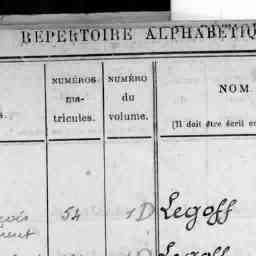 REPERTOIRE ALPHABÉTIQ
NUMÉROS
ma-
tricules.
NUMÉRO
du
volume.
NOM
(Il doit être écrit en
s.
54
1D
Legoff
Legoff